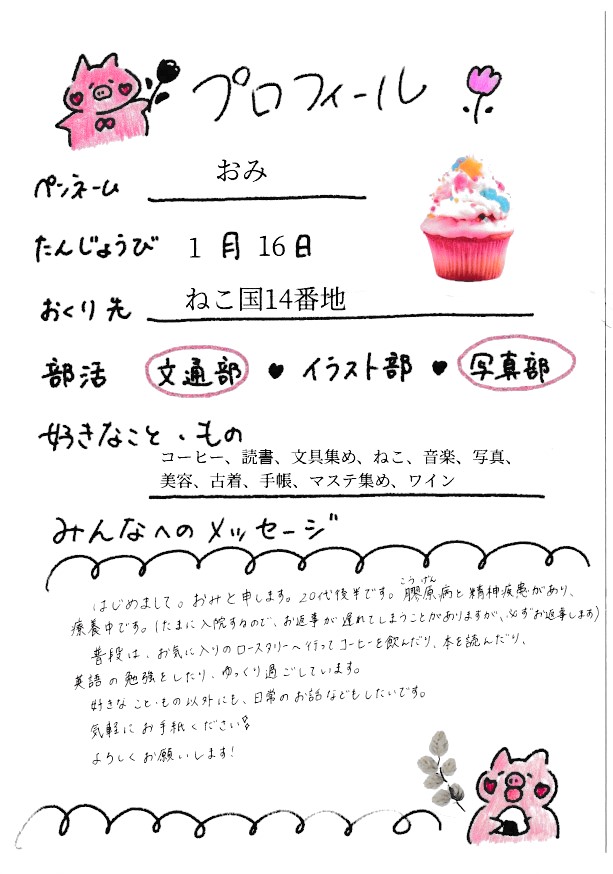 プロフィール
ペンネーム おみ
たんじょうび 1月16日
おくり先 ねこ国14番地
部活 文通部♥イラスト部♥写真部
好きなこと・もの
コーヒー、読書、文具集め、ねこ、音楽、写真、
美容、古着、手帳、マステ集め、ワイン
みんなへのメッセージ
こうげん
はじめまして。おみと申します。20代後半です。膠原病と精神疾患があり、
療養中です。(たまに入院するので、お返事が遅れてしまうことがありますが、必ずお返事します)
普段は、お気に入りのロースタリーへ行ってコーヒーを飲んだり、本を読んだり、
英語の勉強をしたり、ゆっくり過ごしています。
好きなこと・もの以外にも、日常のお話などもしたいです。
気軽にお手紙ください
よろしくお願いします!